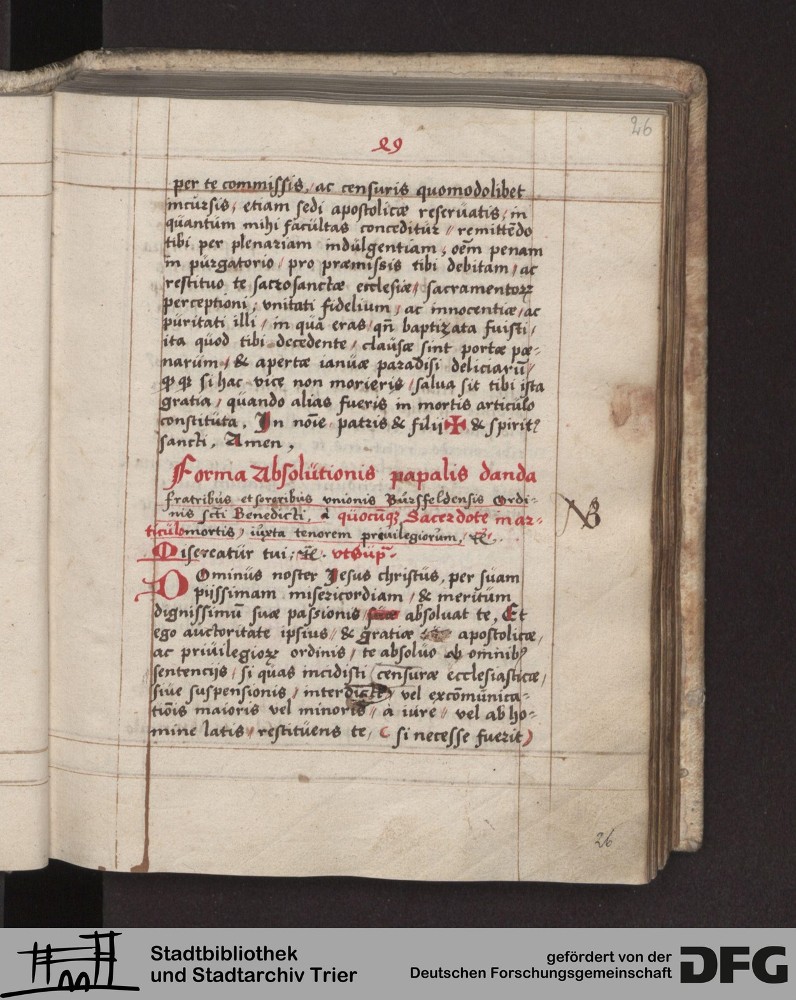 26
29
per te commissis, ac censuris quomodolibet
incursis, etiam sedi apostolicæ reseruatis, in
quantum mihi facultas conceditur, remittēdo
tibi per plenariam indulgentiam, oēm penam
in purgatorio, pro præmissis tibi debitam, ac
restituo te sacrosanctæ ecclesiæ, sacramentoꝝ
perceptioni, vnitati fidelium, ac innocentiæ, ac
puritati illi, in quā eras, qñ baptizata fuisti,
ita quod tibi decedente, clausæ sint portæ pœ-
narum, & apertæ ianuæ paradisi deliciarū,
si hac vice non morieris, salua sit tibi ista
gratia, quando alias fueris in mortis articulo
constituta. In noīe patris & filij ✠ & spiritꝰ
sancti, Amen,
Forma Absolutionis papalis danda
fratribus et sororibus vnionis Bursfeldensis Ordi-
nis scti Benedicti, a quocūq Sacerdote in ar-
ticulo mortis, iuxta tenorem preuilegiorum,
NB
Misereatur tui, ut Sup.
Dominus noster Iesus christus, per suam
pijssimam misericordiam, & meritum
dignissimū suæ passionis absoluat te, Et
ego auctoritate ipsius, & gratiæ apostolicæ,
ac priuilegioꝝ ordinis, te absoluo ab omnibꝰ
sentencijs, si quas incidisti (censuræ ecclesiasticæ,
siue suspensionis, interdicti) vel excōmunica-
tiōis maioris vel minoris, à iure, vel ab ho-
mine latis, restituens te, ( si necesse fuerit)
26
Stadtbibliothek
und Stadtarchiv Trier
gefördert von der
Deutschen Forschungsgemeinschaft
DFG